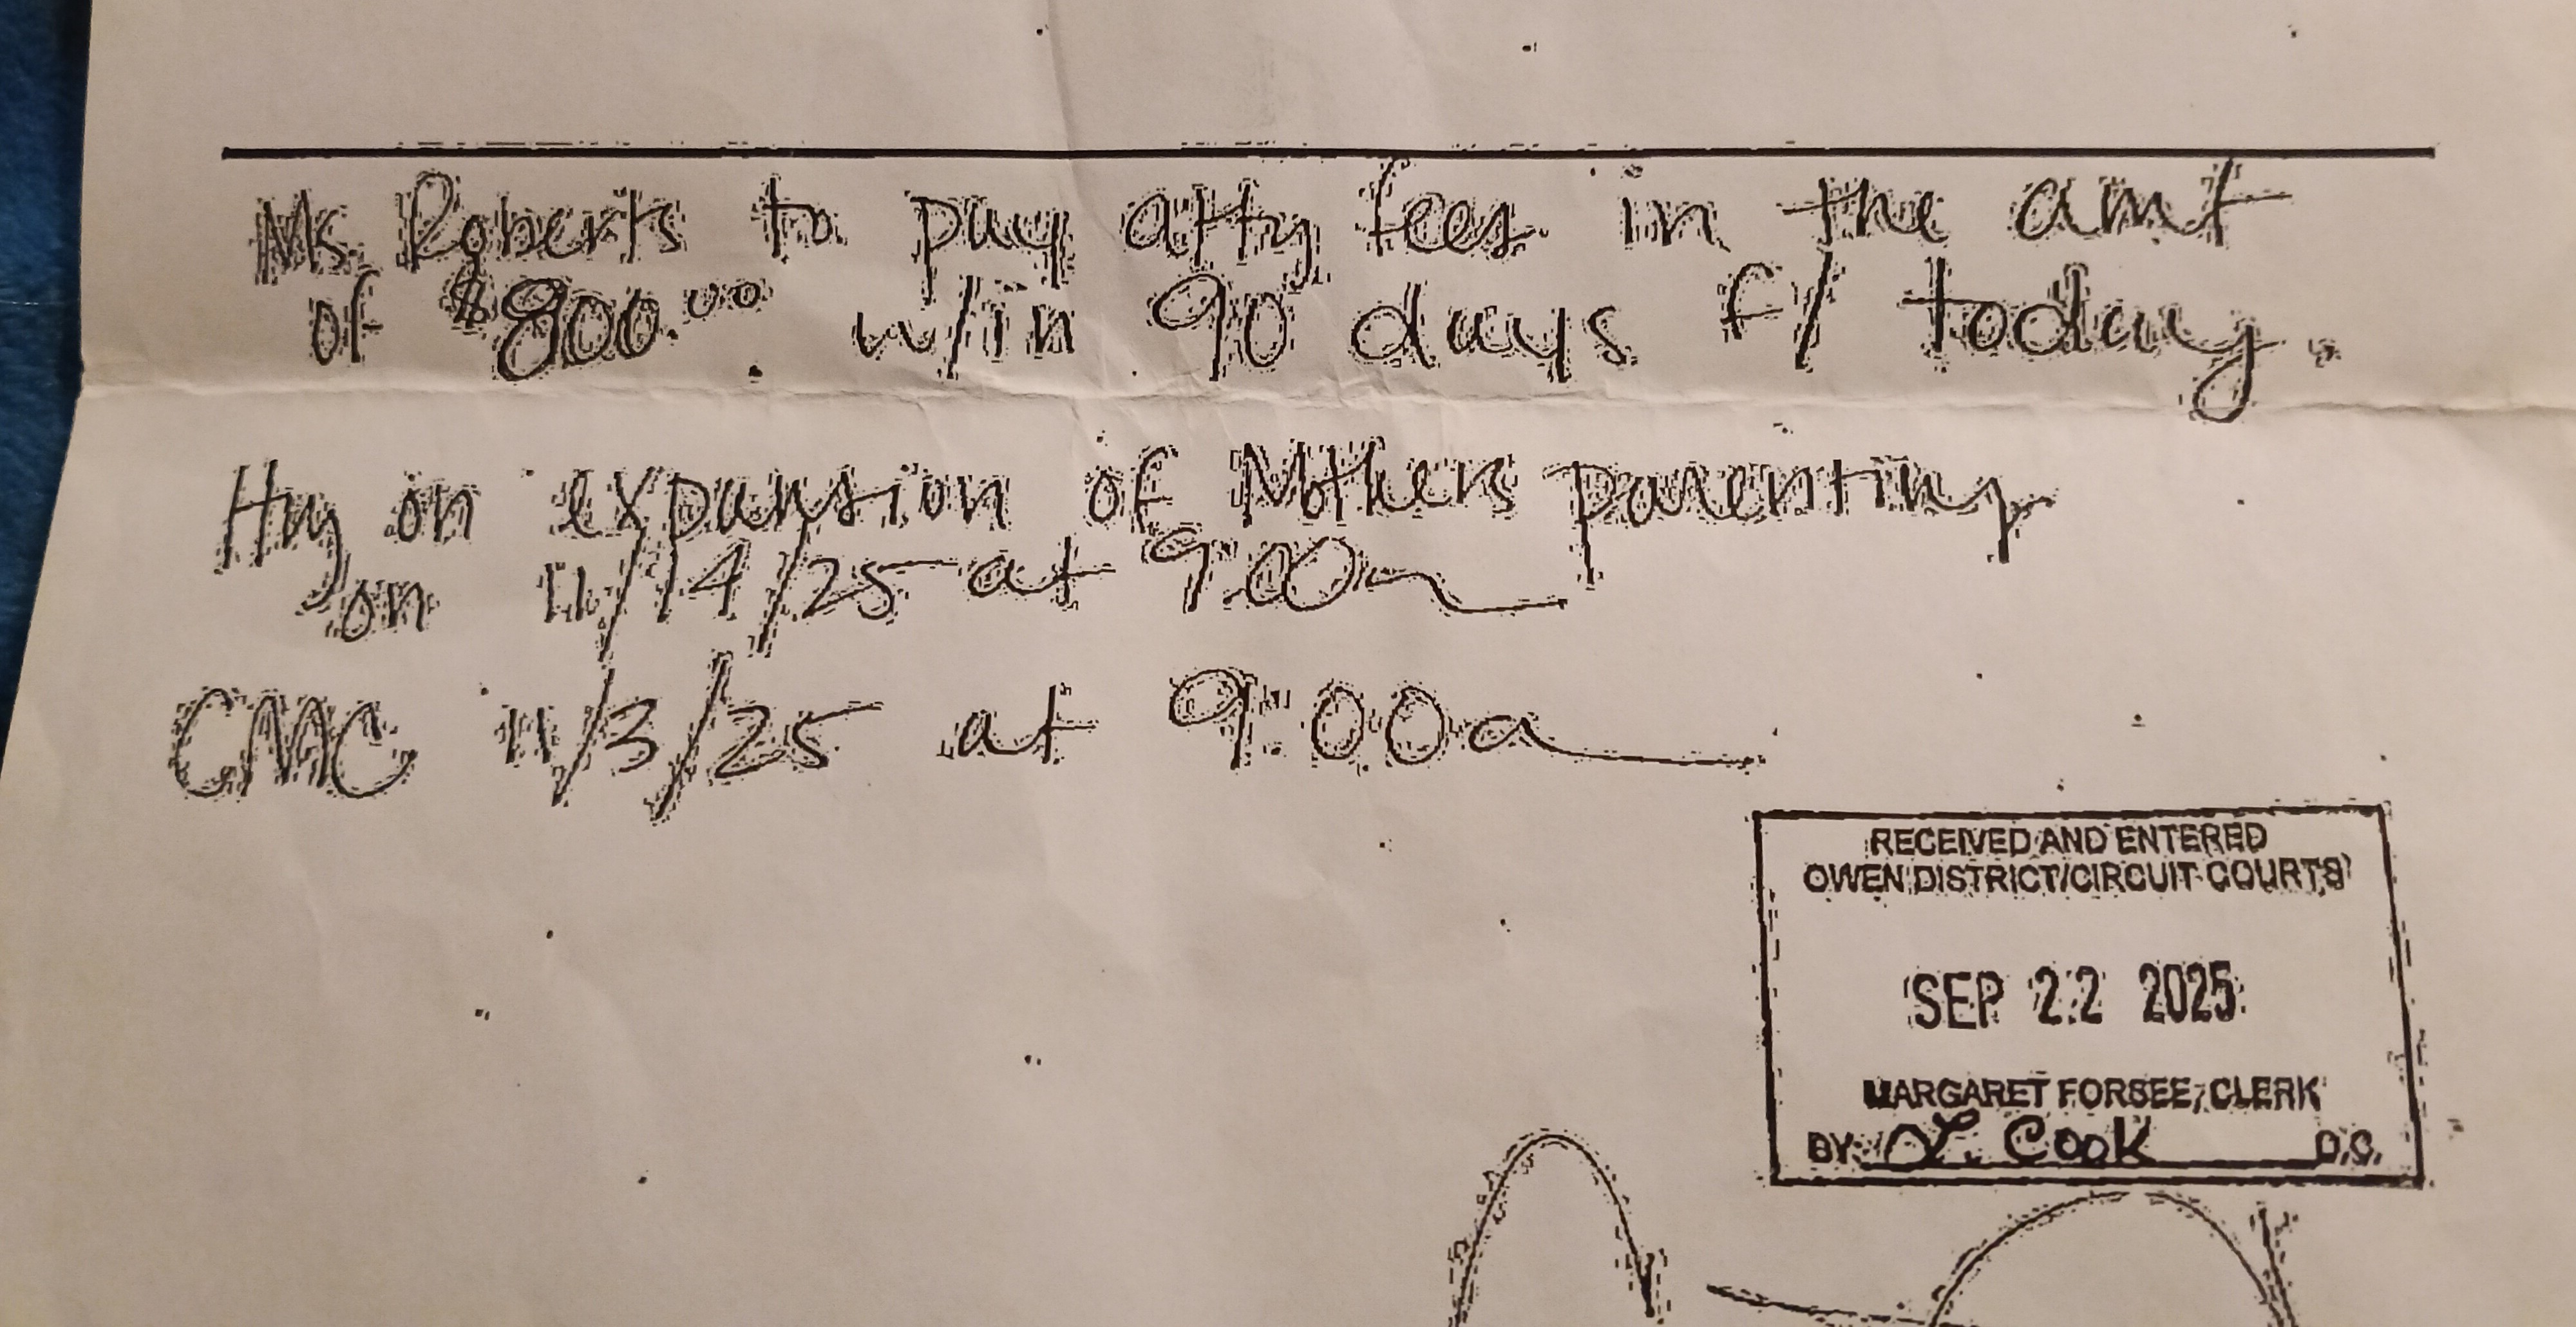 Ms. Roberts to pay atty fees in the amt
of $800.00 w/in 90 days f/ today.
Hrg on expansion of Mothers parenting
on 11/14/25 at 9:00a
CMC 11/3/25 at 9:00a
RECEIVED AND ENTERED
OWEN DISTRICT/CIRCUIT COURTS
SEP 22 2025
MARGARET FORSEE, CLERK
BY: L. Cook D.C.